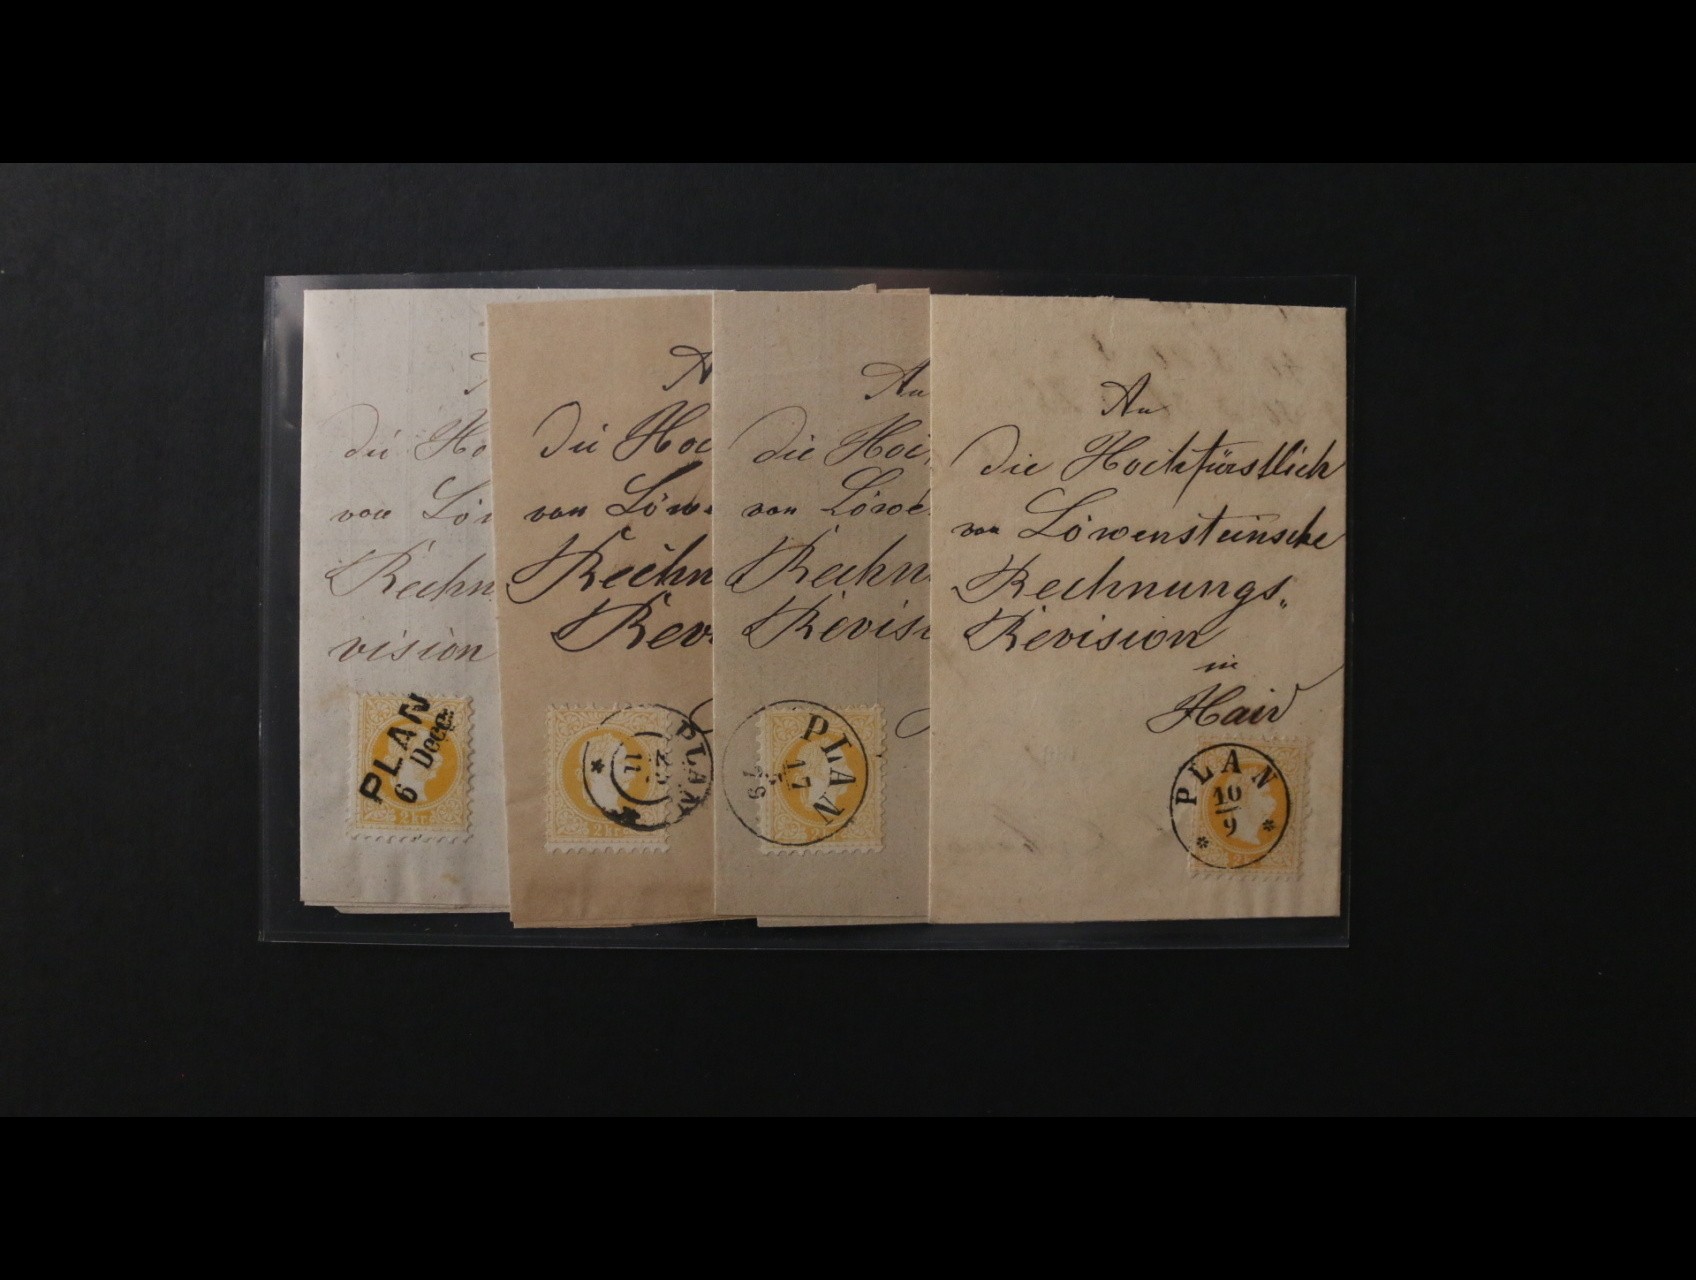 die Ho
von Löw
Rechn
vision
PLAN
6 Decep.
2 kr.
A
die Hoc
von Löwe
Rechn
Revi
PLAN
11
2 kr.
An
die Hoch
von Löwe
Rechn
Revisi
PLAN
17
79
2
An
die Hochfürstlich
von Löwensteinsche
Rechnungs„
Revision
in
Haid
PLAN
10
9
2